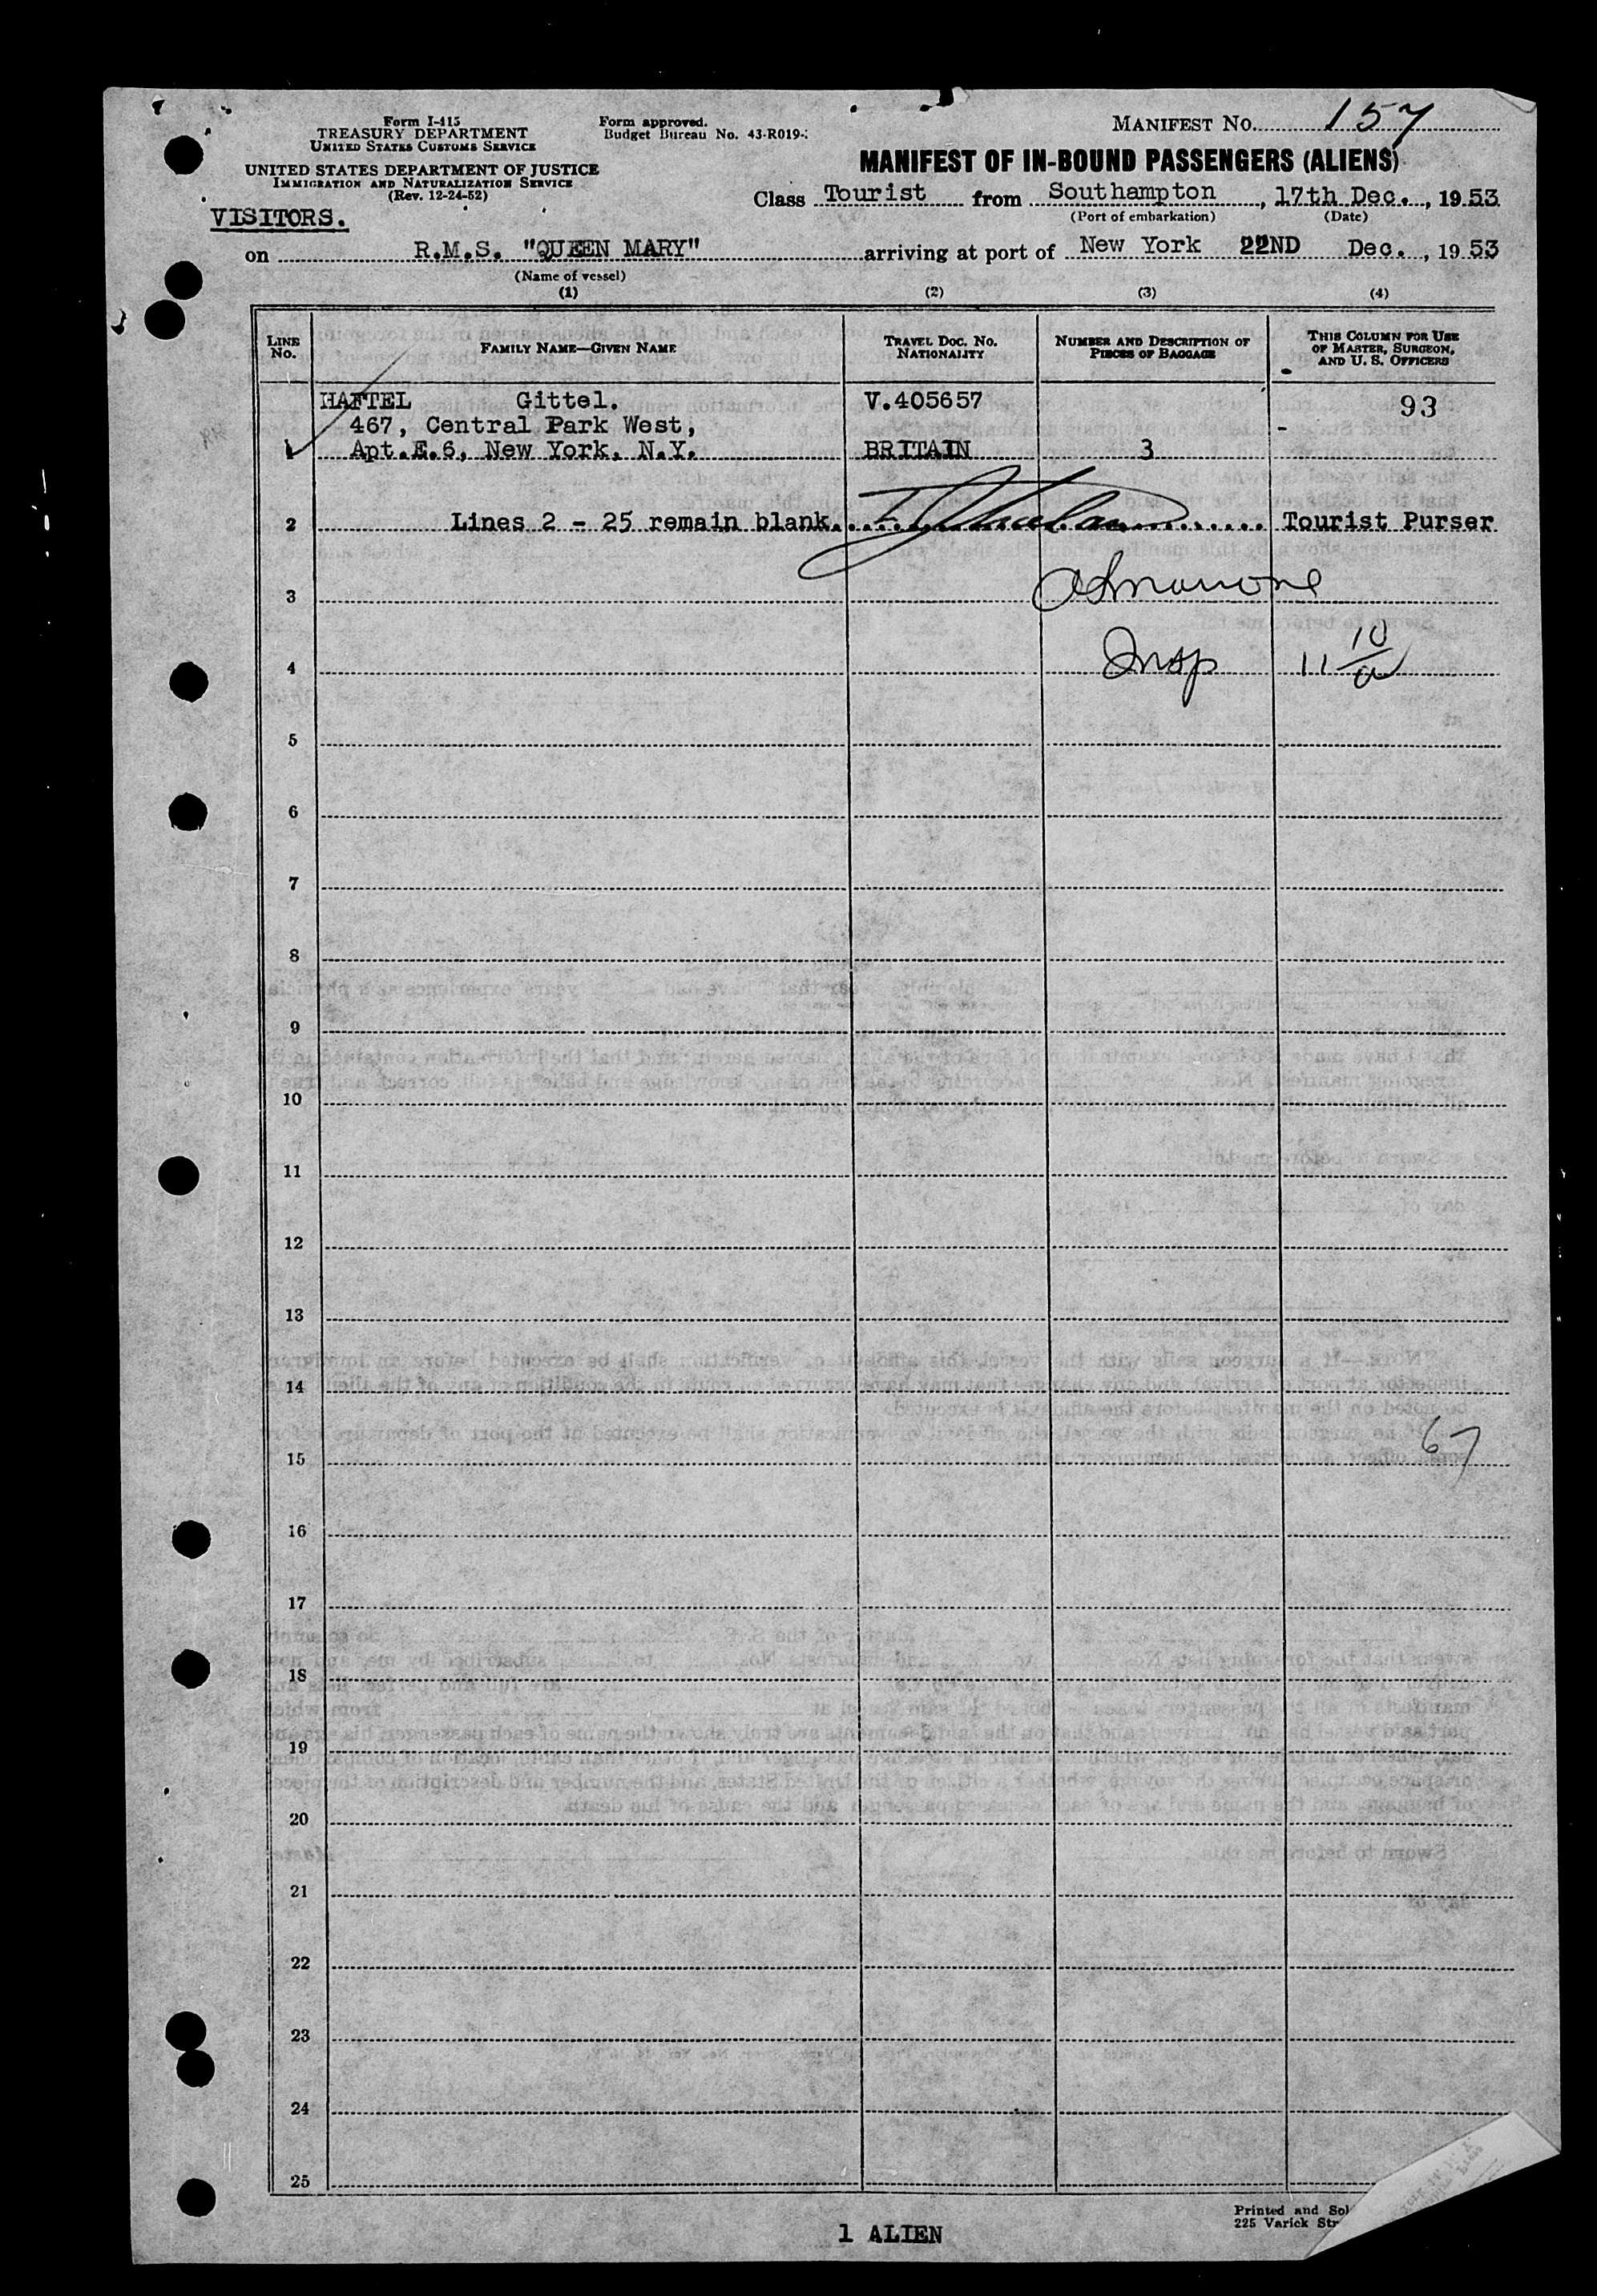 Form I-415
TREASURY DEPARTMENT
UNITED STATES CUSTOMS SERVICE
UNITED STATES DEPARTMENT OF JUSTICE
IMMIGRATION AND NATURALIZATION SERVICE
(Rev. 12-24-52)
VISITORS.
Form approved.
Budget Bureau No. 43-R019-
MANIFEST No. 157
MANIFEST OF IN-BOUND PASSENGERS (ALIENS)
Class Tourist from Southampton, 17th Dec., 1953
(Port of embarkation) (Date)
on R.M.S. "QUEEN MARY" arriving at port of New York 22ND Dec., 1953
(Name of vessel)
(1) (2) (3) (4)
LINE No. FAMILY NAME—GIVEN NAME TRAVEL DOC. NO. NATIONALITY NUMBER AND DESCRIPTION OF PIECES OF BAGGAGE THIS COLUMN FOR USE OF MASTER, SURGEON, AND U. S. OFFICERS
HAFTEL Gittel. V.405657 93
467, Central Park West,
1 Apt.E.6, New York, N.Y. BRITAIN 3
2 Lines 2 - 25 remain blank. Tourist Purser
3
4 Insp 11 10/a
5
6
7
8
9
10
11
12
13
14
67
15
16
17
18
19
20
21
22
23
24
25
Printed and Sol
225 Varick Str
1 ALIEN